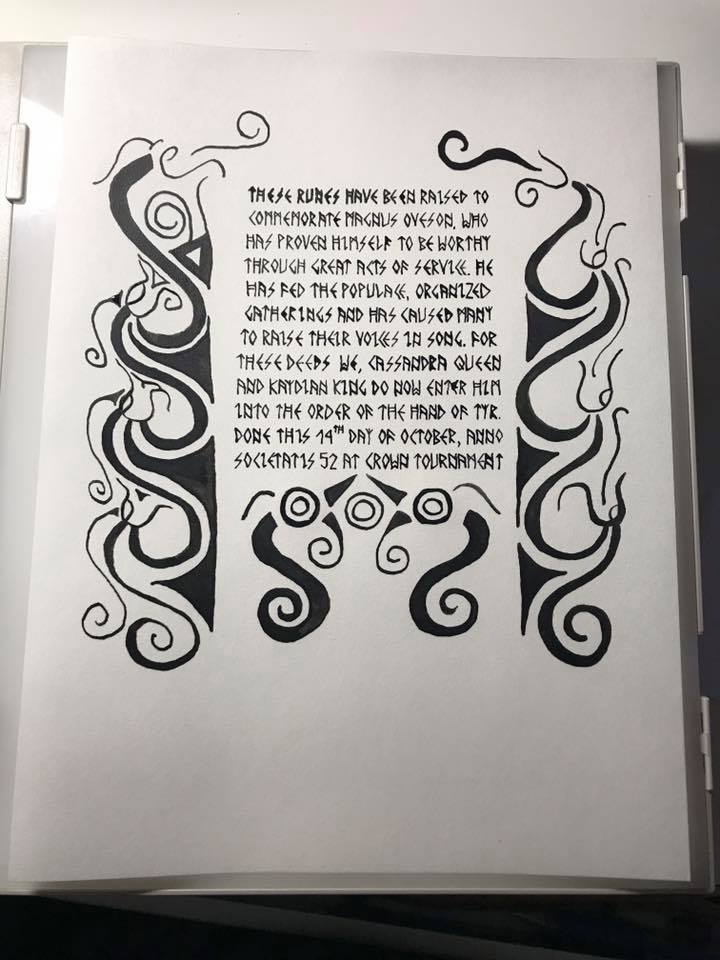 THESE RUNES HAVE BEEN RAISED TO
COMMEMORATE MAGNUS OVESON, WHO
HAS PROVEN HIMSELF TO BE WORTHY
THROUGH GREAT ACTS OF SERVICE. HE
HAS FED THE POPULACE, ORGANIZED
GATHERINGS AND HAS CAUSED MANY
TO RAISE THEIR VOICES IN SONG. FOR
THESE DEEDS WE, CASSANDRA QUEEN
AND KAYDIAN KING DO NOW ENTER HIM
INTO THE ORDER OF THE HAND OF TYR.
DONE THIS 14TH DAY OF OCTOBER, ANNO
SOCIETATIS 52 AT CROWN TOURNAMENT